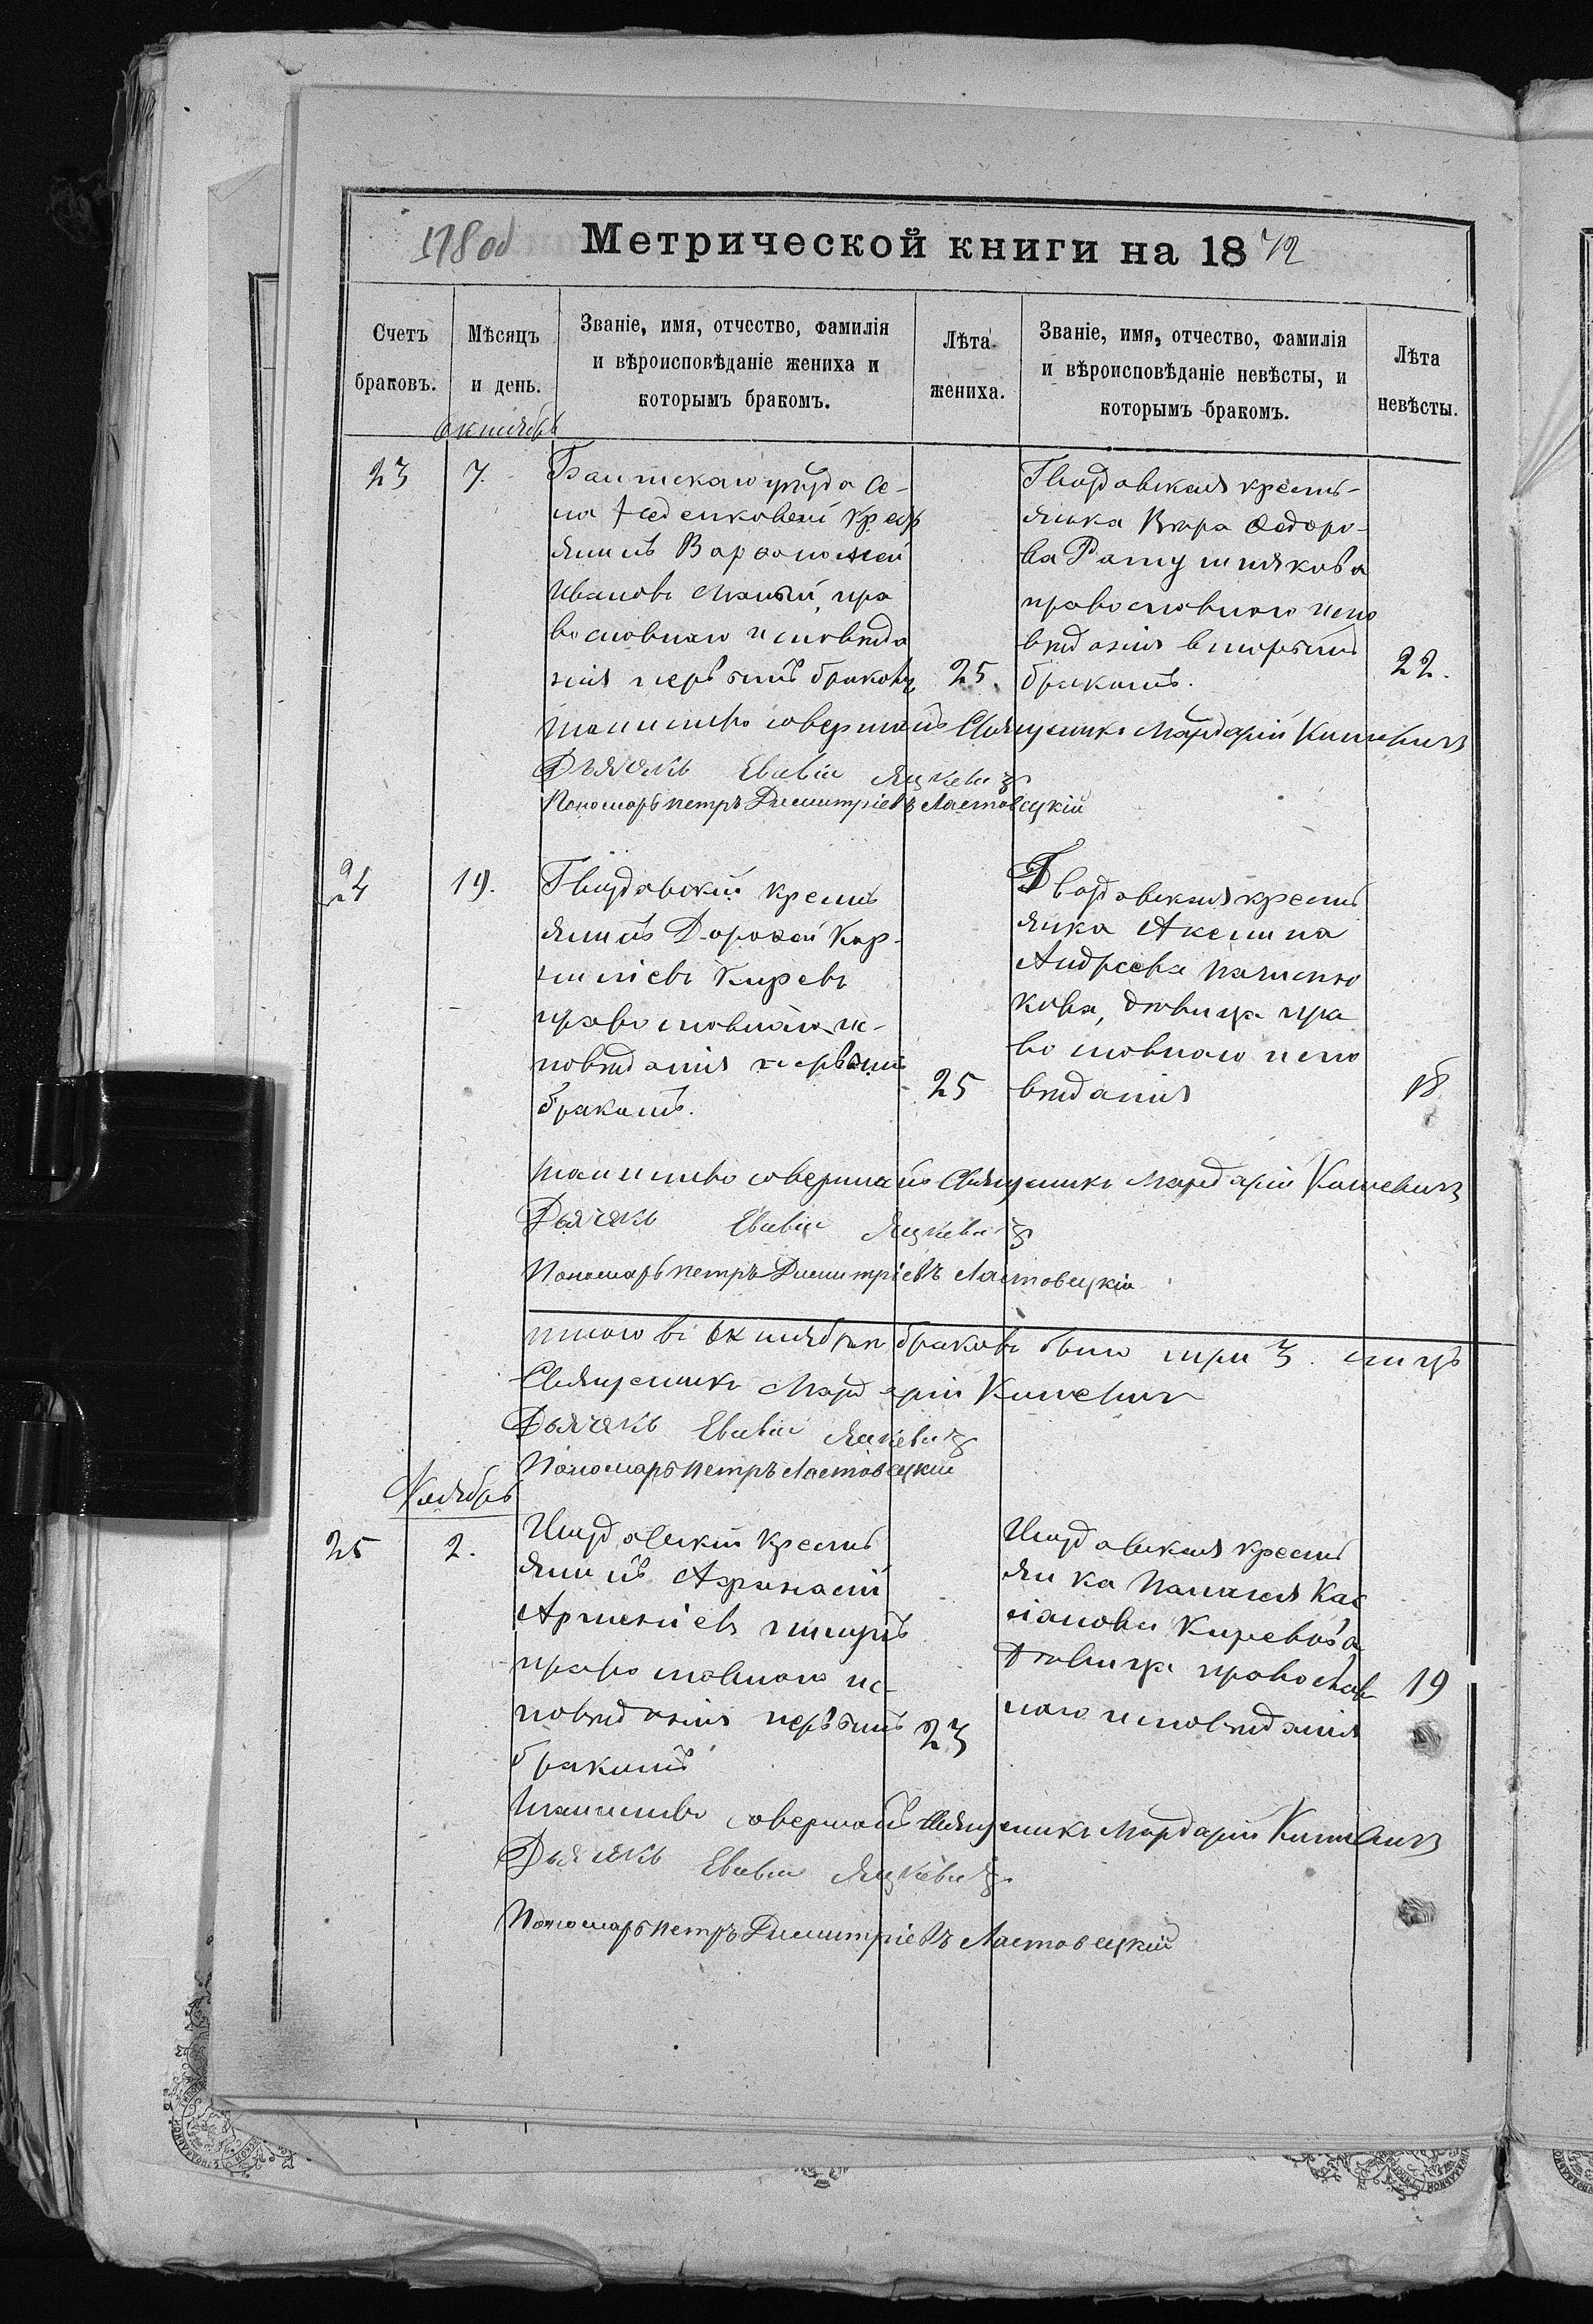 178 об
Метрической книги на 1872
Счетъ браковъ.
Мѣсяцъ и день.
Званіе, имя, отчество, фамилія и вѣроисповѣданіе жениха и которымъ бракомъ.
Лѣта жениха.
Званіе, имя, отчество, фамилія и вѣроисповѣданіе невѣсты, и которымъ бракомъ.
Лѣта невѣсты.
октябрь
23
7.
Балтскаго уѣзда се-
ла крес
янинъ Варфоломей
Ивановъ Малый, пра
вославнаго исповѣда
нія первымъ бракомъ
25.
Гвоздавская кресть-
янка Вѣра Федоро-
ва Ратушнякова
православнаго испо
вѣданія вторымъ
бракомъ.
22.
таинство совершалъ Священникъ Мардарій
Дьячекъ Евсевій Яцкевичъ
Пономарь петръ Димитріевъ Ластовецкій
24
19.
Гвоздавскій крестъ
янинъ Дорофей Кор-
ниліевъ Киревъ
православнаго ис-
повѣданія первымъ
бракомъ.
25
Гвоздавская крестъ
янка Аксинія
Андреева
кова, дѣвица пра
вославнаго испо
вѣданія
18
таинство совершалъ Священникъ Мардарій
Дьячекъ Евсевій Яцкевичъ
Пономарь петръ Димитріевъ Ластовецкій
итого въ октябрѣ браковъ было три 3.
Священникъ Мардарій
Дьячекъ Евсевій Яцкевичъ
Пономарь петръ Ластовецкій
Ноябрь
25
2.
Гвоздавскій крестъ
янинъ Афанасій
Арсеніевъ
православнаго ис-
повѣданія первымъ
бракомъ
23
Гвоздавская крестъ
янка Кас
іанова Киревова
дѣвица православ
наго исповѣданія
19
таинство совершалъ Священникъ Мардарій
Дьячекъ Евсевій Яцкевичъ
Пономарь петръ Димитріевъ Ластовецкій